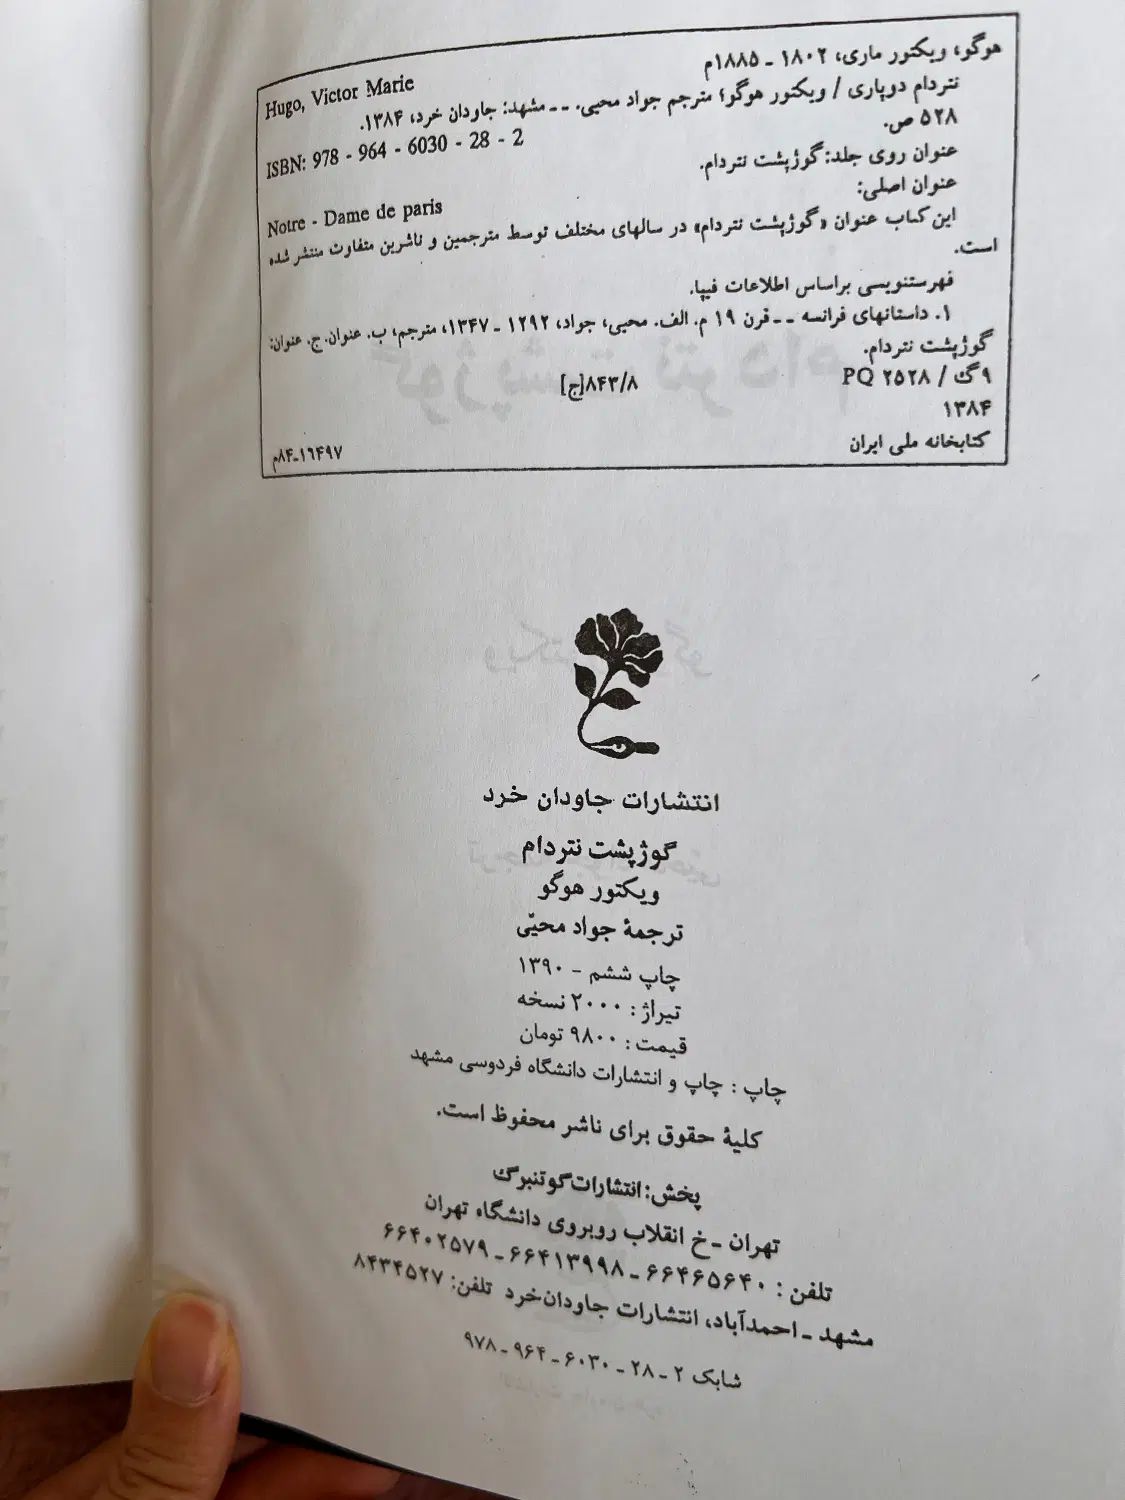 هوگو، ویکتور ماری، ۱۸۰۲ ـ ۱۸۸۵م
Hugo, Victor Marie
نتردام دوپاری / ویکتور هوگو؛ مترجم جواد محیی. ــ مشهد: جاودان خرد، ۱۳۸۴.
۵۲۸ ص.
ISBN: 978 - 964 - 6030 - 28 - 2
عنوان روی جلد: گوژپشت نتردام.
عنوان اصلی:
Notre - Dame de paris
این کتاب عنوان «گوژپشت نتردام» در سالهای مختلف توسط مترجمین و ناشرین متفاوت منتشر شده
است.
فهرستنویسی براساس اطلاعات فیپا.
۱. داستانهای فرانسه ــ قرن ۱۹ م. الف. محیی، جواد، ۱۲۹۲ ـ ۱۳۴۷، مترجم، ب. عنوان. ج. عنوان:
گوژپشت نتردام.
۹گ / PQ ۲۵۲۸
۸۴۳/۸[ج]
۱۳۸۴
کتابخانه ملی ایران
۸۴ـ۱۶۴۹۷م
انتشارات جاودان خرد
گوژپشت نتردام
ویکتور هوگو
ترجمهٔ جواد محیّی
چاپ ششم - ۱۳۹۰
تیراژ: ۲۰۰۰ نسخه
قیمت: ۹۸۰۰ تومان
چاپ : چاپ و انتشارات دانشگاه فردوسی مشهد
کلیهٔ حقوق برای ناشر محفوظ است.
پخش: انتشارات گوتنبرگ
تهران ـ خ انقلاب روبروی دانشگاه تهران
تلفن: ۶۶۴۶۵۶۴۰ ـ ۶۶۴۱۳۹۹۸ ـ ۶۶۴۰۲۵۷۹
مشهد ـ احمدآباد، انتشارات جاودان‌خرد تلفن: ۸۴۳۴۵۲۷
شابک ۲ ـ ۲۸ ـ ۶۰۳۰ ـ ۹۶۴ ـ ۹۷۸